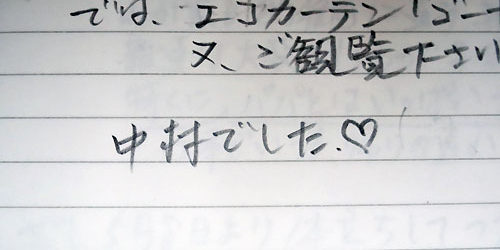 では、エコカーテンゴー
又、ご観覧下さい
中村でした。♡